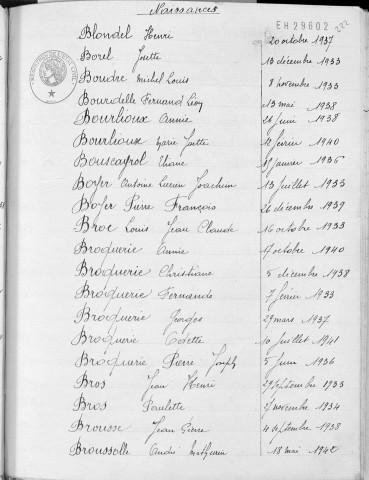 Naissances
EH29602 222
Blondel Henri 20 octobre 1937
Borel Josette 13 décembre 1933
Boudre Michel Louis 8 novembre 1933
Bourdelle Fernand Léon 13 mai 1938
Bourlioux Annie 26 juin 1938
Bourlioux Marie Josette 12 février 1940
Bouscayrol Eliane janvier 1936
Boyer Antoine Lucien Joachim 13 juillet 1935
Boyer Pierre François 26 décembre 1939
Broc Louis Jean Claude 16 octobre 1933
Broquerie Annie 17 octobre 1940
Broquerie Christiane 5 décembre 1938
Broquerie Fernande 7 février 1933
Broquerie Georges 29 mars 1937
Broquerie Odette 10 juillet 1941
Broquerie Pierre Joseph 5 juin 1936
Bros Jean Henri 29 septembre 1933
Bros Paulette novembre 1934
Brousse Jean Pierre 4 septembre 1938
Broussolle André Mathurin 18 mai 1942